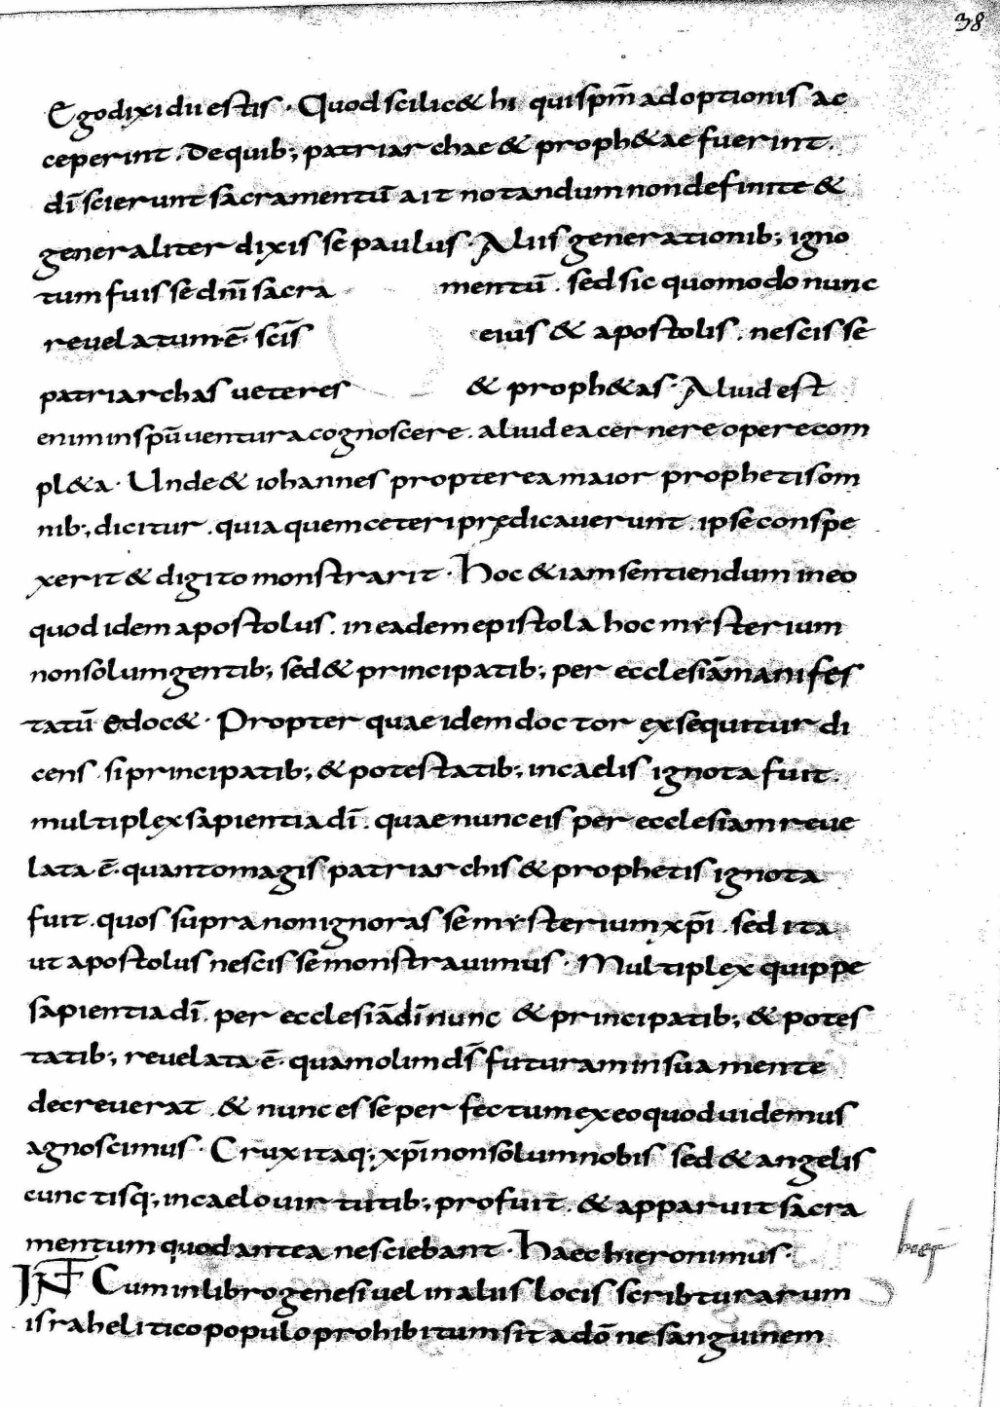 38
Ego dixi dii estis · Quod scilic& hi qui spm̄ adoptionis ac
ceperint . De quib; patriarchae & proph&ae fuerint .
dī scierunt sacramentū ait notandum non definite &
generaliter dixisse paulus · Aliis generationib; igno
tum fuisse dnī sacra mentū . sed sic quomodo nunc
revelatum ē scīs eius & apostolis . nescisse
patriarchas veteres & proph&as · Aliud est
enim in spū ventura cognoscere . aliud ea cernere opere com
pl&a · Unde & iohannes propterea maior prophetis om
nib; dicitur . quia quem ceteri predicaverunt . ipse conspe
xerit & digito monstrarit · Hoc & iam sentiendum in eo
quod idem apostolus . in eadem epistola hoc mysterium
non solum gentib; sed & principatib; per ecclesiā manifes
tatū edoc& · Propter quae idem doctor exsequitur di
cens . si principatib; & potestatib; in caelis ignota fuit .
multiplex sapientia dī . quae nunc eis per ecclesiam reve
lata ē . quanto magis patriarchis & prophetis ignota
fuit . quos supra non ignorasse mysterium xpī . sed ita
ut apostolus nescisse monstravimus · Multiplex quippe
sapientia dī . per ecclesiā dī nunc & principatib; & potes
tatib; revelata ē · quam olim ds̄ futuram in sua mente
decreverat . & nunc esse perfectum ex eo quod videmus
agnoscimus · Crux itaq; xpī non solum nobis sed & angelis
cunctisq; in caelo virtutib; profuit . & apparuit sacra
mentum quod antea nesciebant · Haec hieronimus ·
INT Cum in libro genesi vel in aliis locis scribturarum
israhelitico populo prohibitum sit a dō ne sanguinem